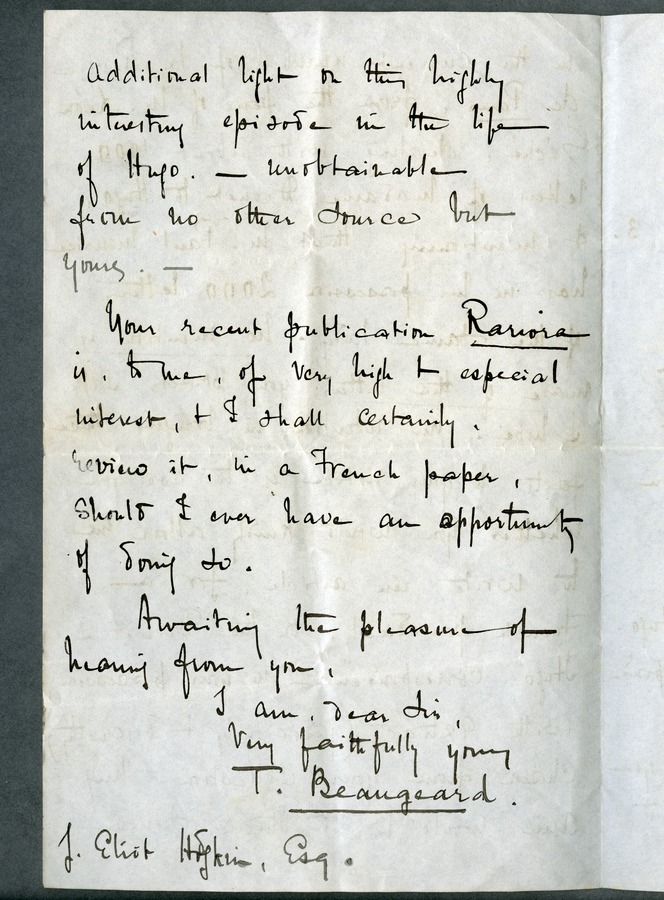 additional light on this highly
interesting episode in the life
of Hugo. — unobtainable
from no other source but
yours. —
Your recent publication Rariora
is, to me, of very high & especial
interest, & I shall certainly,
review it, in a French paper,
should I ever have an opportunity
of doing so.
Awaiting the pleasure of
hearing from you,
I am, dear Sir,
Very faithfully yours
T. Beaugeard.
J. Eliot Hodgkin, Esq.